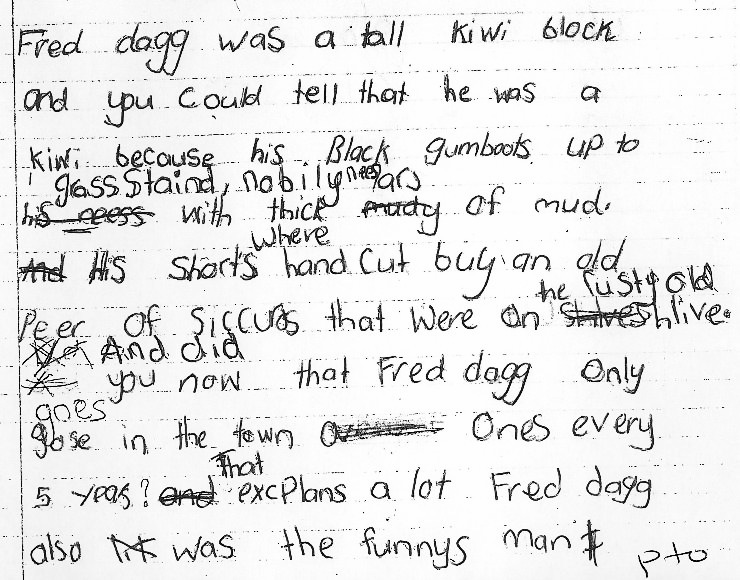 Fred dagg was a tall kiwi block
and you could tell that he was a
kiwi because his Black gumboots up to
grass staind, nobily
his neess with thick mudy of mud.
where
And His shorts hand cut buy an old
the rusty old
Peer of siccuos that were on shlive.
And did
you now that Fred dagg only
goes
gose in the town Ones every
That
5 yeas? and excplans a lot Fred dagg
also was the funnys man
pto